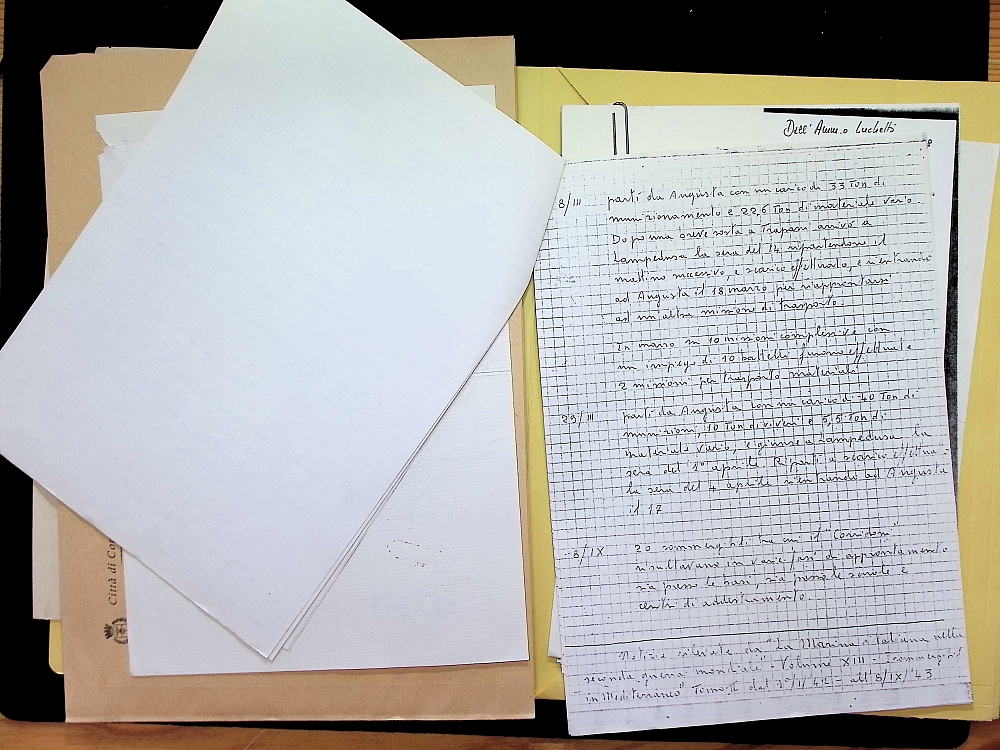 Dell'Amm.o Luchetti
8/III parti da Augusta con un carico di 33 Ton di
munizionamento e 22,6 Ton di materiale vario.
Dopo una breve sosta a Trapani arrivò a
Lampedusa la sera del 14 ripartendone il
mattino successivo, a scarico effettuato, e rientrando
ad Augusta il 18 marzo per riapprontarsi
ad un'altra missione di trasporto.
In marzo su 10 missioni complessive con
un impiego di 10 battelli furono effettuate
2 missioni per trasporto materiali
29/III parti da Augusta con un carico di 40 Ton di
munizioni, 10 Ton di viveri e 5,5 Ton di
materiale vario, e giunse a Lampedusa la
sera del 1° aprile. Ripartì a scarico effettua-
to la sera del 4 aprile rientrando ad Augusta
il 17
8/IX 20 sommergibili tra cui il "Corridoni"
risultavano in varie fasi di approntamento
sia presso le basi, sia presso le scuole e
centri di addestramento.
Notizie rilevate da "La Marina italiana nella
seconda guerra mondiale" Volume XIII - I sommergibili
in Mediterraneo" Tomo II dal 1°/1/42 - all'8/IX/43
Città di